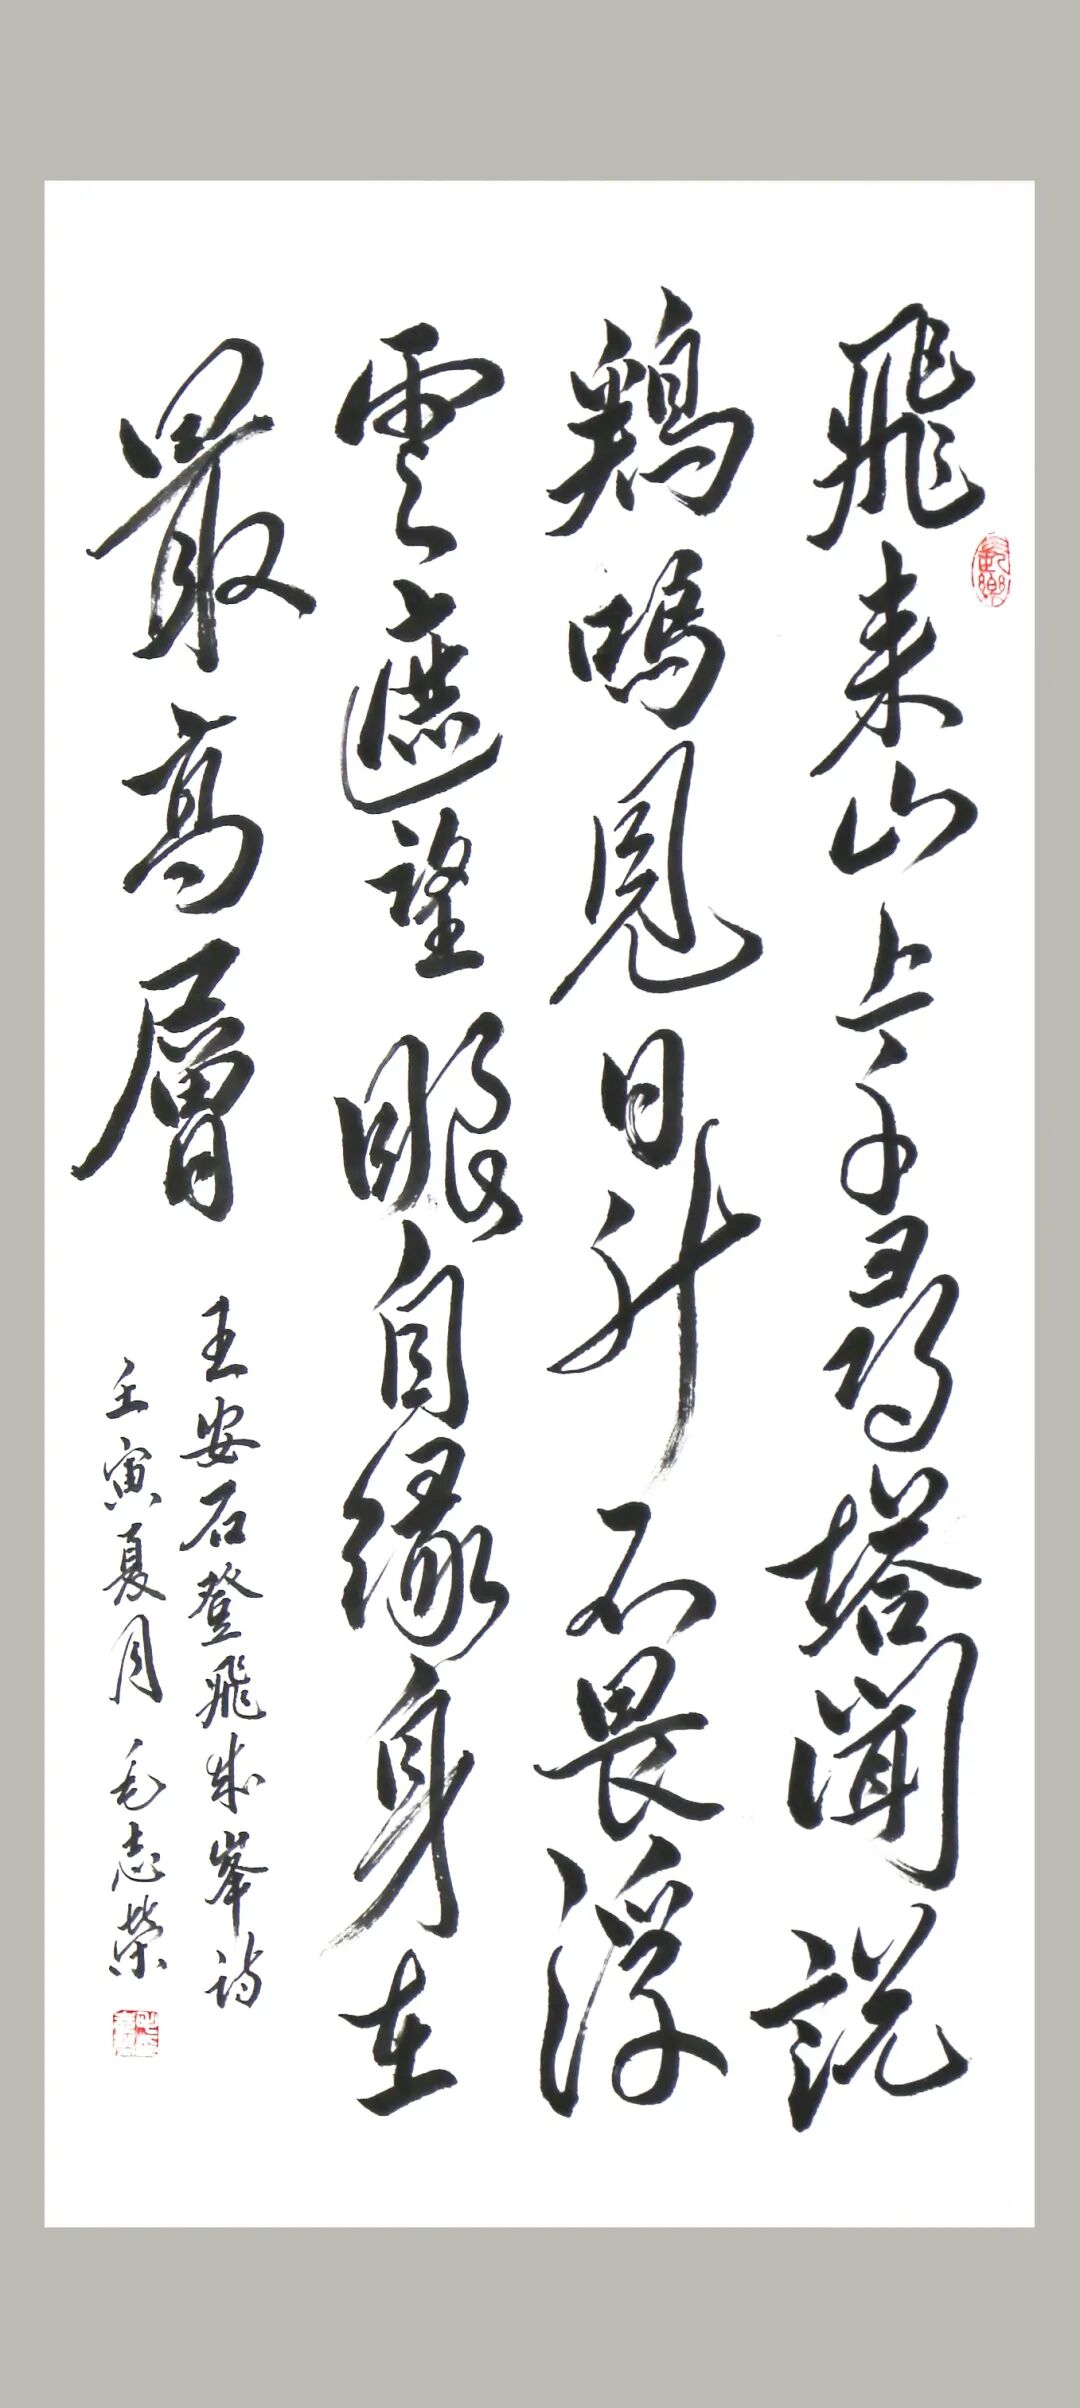 飛来山上千尋塔聞説
鷄鳴見日升不畏浮
雲遮望眼自緣身在
最高層
王安石登飛来峯詩
壬寅夏月毛志榮